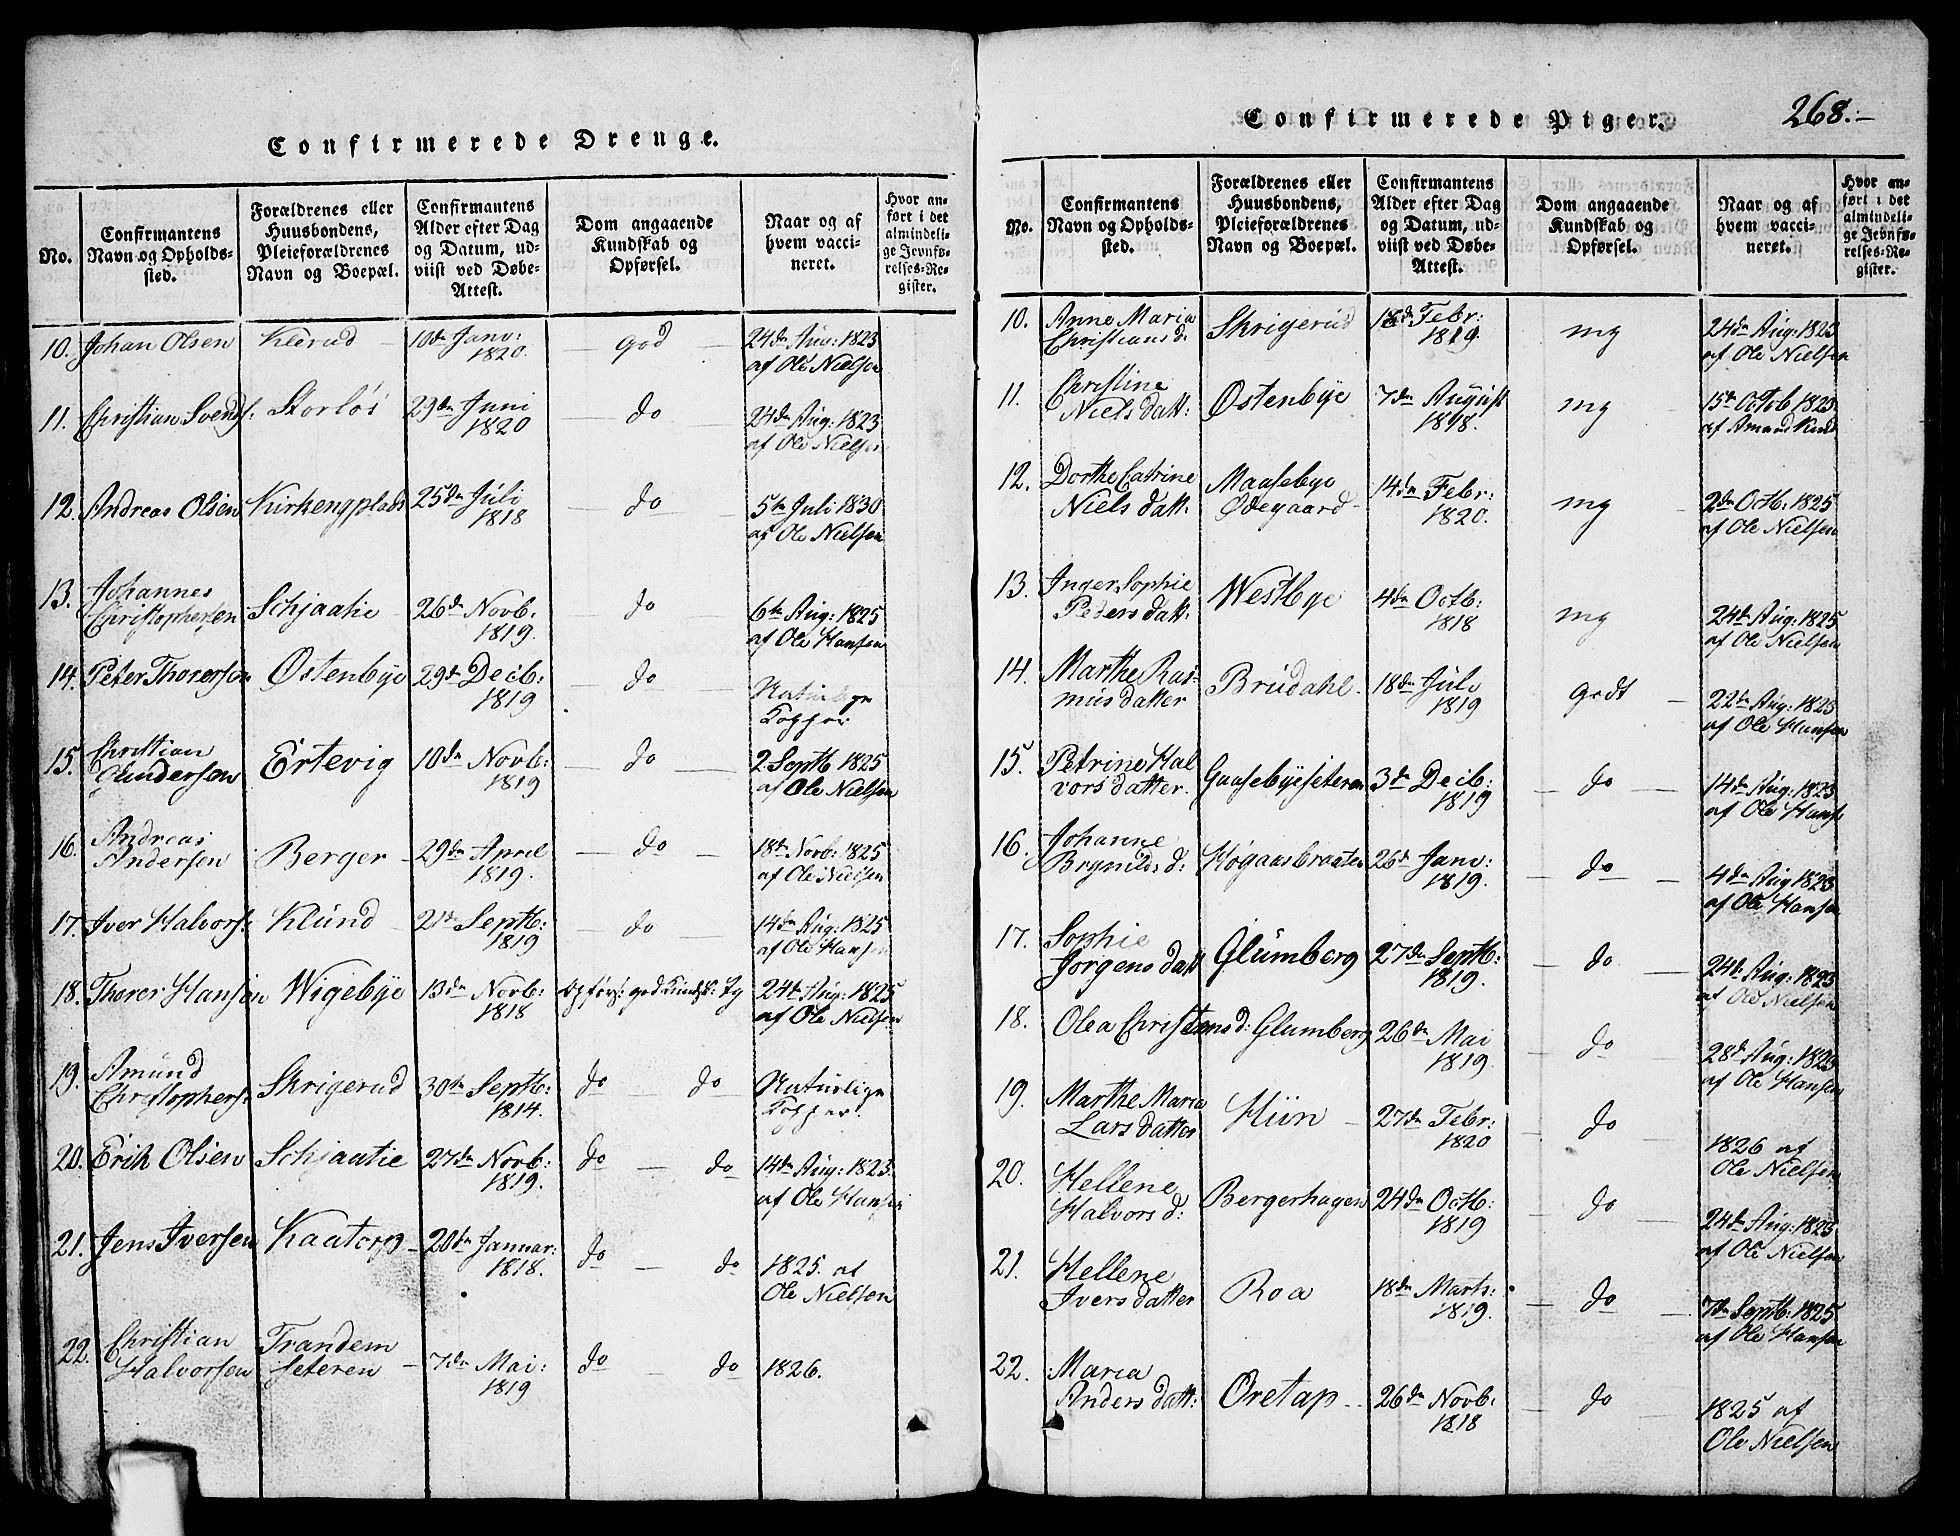 Confirmerede Drenge.
No.
Confirmantens
Navn og Opholds-
sted.
Forældrenes eller
Huusbondens,
Pleieforældrenes
Navn og Boepæl.
Confirmantens
Alder efter Dag
og Datum, ud-
viist ved Døbe-
Attest.
Dom angaaende
Kundskab og
Opførsel.
Naar og af
hvem vacci-
neret.
Hvor an-
ført i det
almindeli-
ge Jevnfø-
relses-Re-
gister.
10. Johan Olsen Klerud 10de Janv: 1820. god 24de Aug: 1823 af Ole Nielsen
11. Christian Svends. Storløs 29de Juni 1820 do 24de Aug: 1823 af Ole Nielsen
12. Andreas Olsen Kirkengplads 25de Juli 1818 do 5te Juli 1830 af Ole Nielsen
13. Johannes Christophersen Schjaatie 26de Novb. 1819. do 6te Aug: 1825 af Ole Hansen
14. Peter Thorersen Østenbye 29de Decb: 1819 do Naturlige Kopper
15. Christian Gundersen Ertevig 10de Novb: 1819 do 2 Septb 1825 af Ole Nielsen
16. Andreas Andersen Berger 29de April 1819. do 18de Novb: 1825 af Ole Nielsen
17. Iver Halvors: Klund 21de Septb: 1819 do 14de Aug: 1825 af Ole Hansen
18. Thorer Hansen Wigebye 13de Novb: 1818 Opførs: god Kundsk: tg 24de Aug: 1825 af Ole Nielsen
19. Amund Christophers: Skrigerud 30te Septb: 1814. do do Naturlige Kopper.
20. Erik Olsen Schjaatie 27de Novb: 1819. do do 14de Aug: 1823 af Ole Hansen
21. Jens Iversen Kaatorp 20de Januar: 1818. do do 1825. af Ole Nielsen
22. Christian Halvorsen Trandem seteren 7de Mai: 1819 do do 1826.
Confirmerede Piger.
268.
No.
Confirmantens
Navn og Opholds-
sted.
Forældrenes eller
Huusbondens,
Pleieforældrenes
Navn og Boepæl.
Confirmantens
Alder efter Dag
og Datum, ud-
viist ved Døbe-
Attest.
Dom angaaende
Kundskab og
Opførsel.
Naar og af
hvem vacci-
neret.
Hvor an-
ført i det
almindeli-
ge Jevnfø-
relses-Re-
gister.
10. Anne Maria Christiansd. Skrigerud 18de Febr: 1819. mg 24de Aug: 1823 af Ole Nielsen
11. Christine Nielsdatt: Østenbye 7de August 1818. mg 15de Octob 1823 af Amund
12. Dorthe Catrine Nielsdatt. Maasebye Ødegaard 14de Febr: 1820. mg 2de Octb. 1825 af Ole Nielsen
13. Inger Sophie Pedersdatt. Westbye 4de Octb: 1818 mg 24de Aug: 1825 af Ole Nielsen
14. Marthe Rasmusdatter Brudahl. 18de Juli 1819 godt 22de Aug: 1825 af Ole Hansen
15. Petrine Halvorsdatter. Gaasebyeseteren 3de Decb: 1819 do 14de Aug: 1823 af Ole Hans.
16. Johanne Brynilds d: Høgaasbraaten 26de Janv: 1819. do 4de Aug 1823 af Ole Hansen
17. Sophie Jorgensdatt Glumberg 27de Septb: 1819. do 24de Aug: 1823 af Ole Nielsen
18. Olea Christensd: Glumberg 26de Mai 1819 do 28de Aug: 1825 af Ole Hansen
19. Marthe Maria Larsdatter Hiin 27de Febr: 1820 do 1826 af Ole Nielsen
20. Hellene Halvorsd: Bergerhagen 24de Octb: 1819 do 24de Aug: 1823 af Ole Nielsen
21. Hellene Iversdatter Roa 18de Marts. 1819. do 7de Septb: 1825 af Ole Hansen
22. Maria Andersdatt: Oretap 26de Novb. 1818 do 1825 af Ole Nielsen